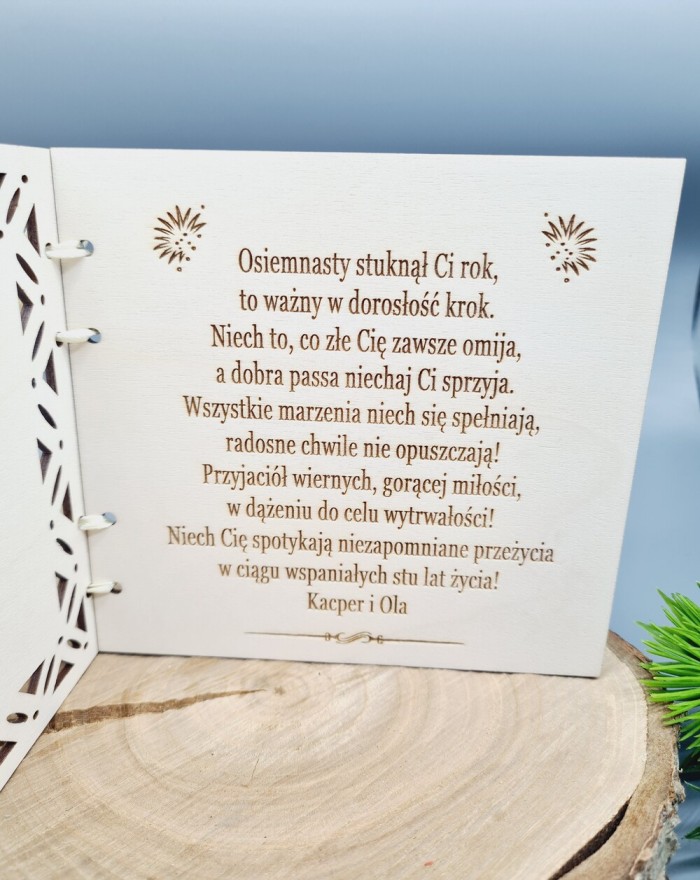 Osiemnasty stuknął Ci rok,
to ważny w dorosłość krok.
Niech to, co złe Cię zawsze omija,
a dobra passa niechaj Ci sprzyja.
Wszystkie marzenia niech się spełniają,
radosne chwile nie opuszczają!
Przyjaciół wiernych, gorącej miłości,
w dążeniu do celu wytrwałości!
Niech Cię spotykają niezapomniane przeżycia
w ciągu wspaniałych stu lat życia!
Kacper i Ola